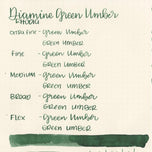 Diamine Green Umber
Rhodia
Extra Fine - Green Umber
Green Umber
Fine - Green Umber
Green Umber
Medium - Green Umber
Green Umber
Broad - Green Umber
Green Umber
Flex - Green Umber
Green Umber